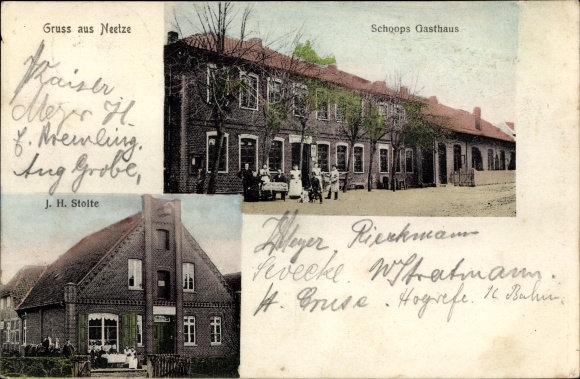 Gruss aus Neetze
Schoops Gasthaus
Kaiser
Meyer H
f. Kremling.
Aug Grobe,
J. H. Stolte
H Meyer Rieckmann
Sevecke. W Stratmann.
H. Cruse. Hogrefe. H. Bahn